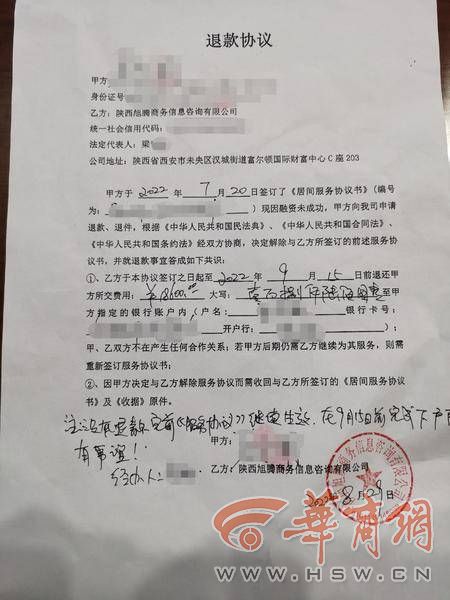 退款协议
甲方
身份证号
乙方：陕西旭腾商务信息咨询有限公司
统一社会信用代码：
法定代表人：梁
公司地址：陕西省西安市未央区汉城街道富尔顿国际财富中心C座203
甲方于 2022 年 7 月 20 日签订了《居间服务协议书》（编号
为： ）现因融资未成功，甲方向我司申请
退款、退件，根据《中华人民共和国民法典》、《中华人民共和国合同法》、
《中华人民共和国条约法》经双方协商，决定解除与乙方所签订的前述服务协
议书，并就退款事宜答成如下共识：
①、乙方于本协议签订之日起至 2022 年 9 月 15 日前退还甲
方所交费用： 大写： 至甲
方指定的银行账户内（户名： 银行卡号：
开户行： ）
甲、乙双方不在产生任何合作关系；若甲方后期仍需乙方继续为其服务，则需
重新签订服务协议书；
②、因甲方决定与乙方解除服务协议而需收回与乙方所签订的《居间服务协议
书》及《收据》原件。
注：没有退款完前《服务协议》继续生效，在9月15日前完成
有事宜！
甲方：
经办人： 乙方：陕西旭腾商务信息咨询有限公司
商务信息咨询有限公司
2022年8月29日
华商网
WWW.HSW.CN